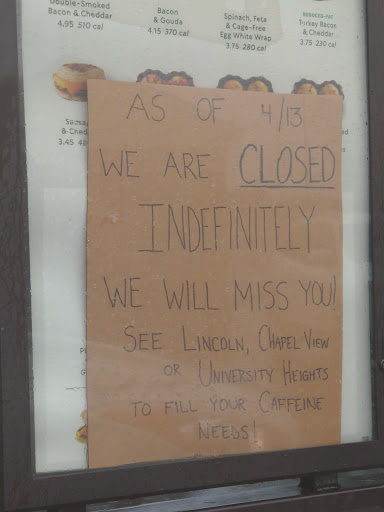 Double-Smoked
Bacon & Cheddar
4.95 510 cal
Bacon
& Gouda
4.15 370 cal
Spinach, Feta
& Cage-Free
Egg White Wrap
3.75 280 cal
REDUCED-FAT
Turkey Bacon
& Cheddar
3.75 230 cal
& Ched
3.45
AS OF 4/13
WE ARE CLOSED
INDEFINITELY
WE WILL MISS YOU!
SEE LINCOLN, CHAPEL VIEW
OR UNIVERSITY HEIGHTS
TO FILL YOUR CAFFEINE
NEEDS!